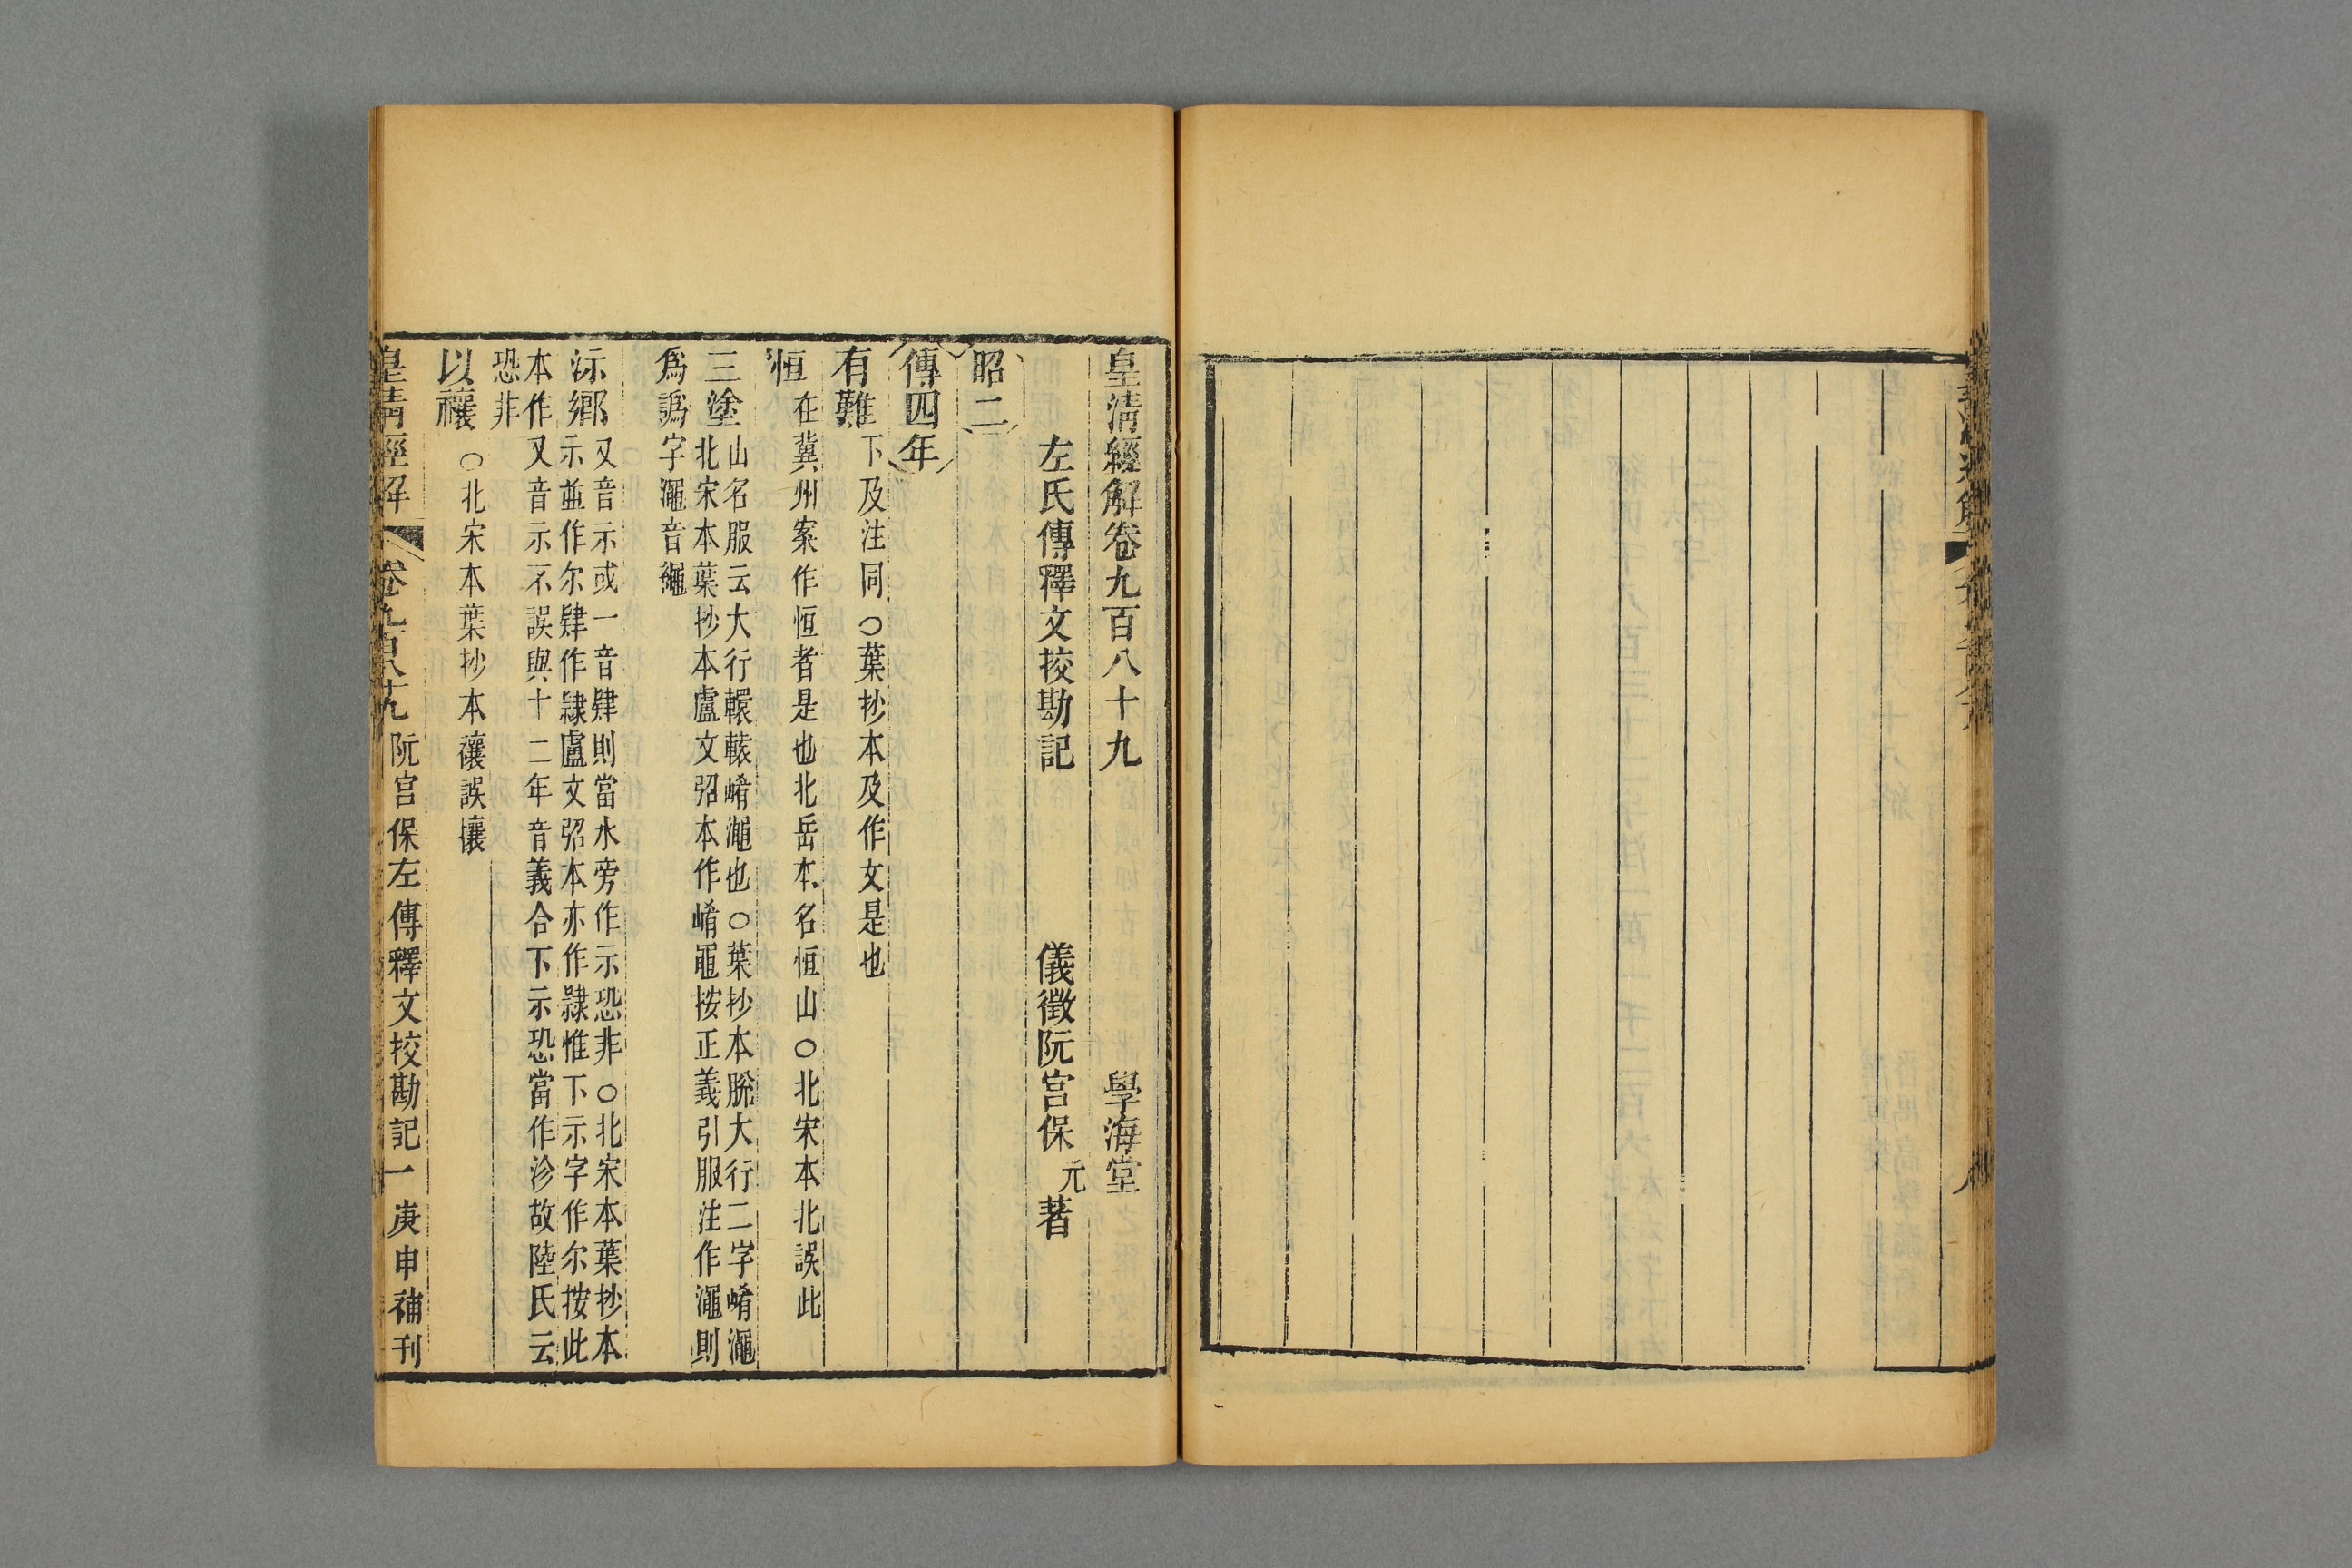 皇清經解卷九百八十九 學海堂
左氏傳釋文挍勘記 儀徵阮宮保元著
昭二
傳四年
有難 下及注同○葉抄本及作文是也
恒 在冀州案作恒者是也北岳本名恒山○北宋本北誤此
三塗 山名服云大行轘轅崤澠也○葉抄本脫大行二字崤澠
北宋本葉抄本盧文弨本作崤黽按正義引服注作澠則
爲譌字澠音繩
沶鄉 又音示或一音肄則當水旁作示恐非○北宋本葉抄本
示並作尔肄作隷盧文弨本亦作隷惟下示字作尔按此
本作又音示不誤與十二年音義合下示恐當作沴故陸氏云
恐非
以禳 ○北宋本葉抄本禳誤懹
皇清經解 卷九百八十九 阮宮保左傳釋文挍勘記 一 庚申補刊